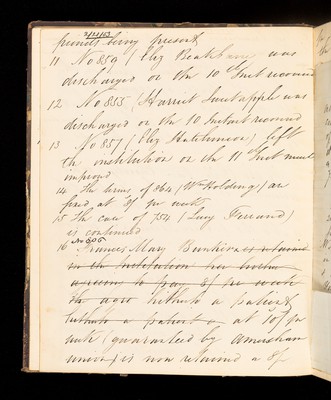 3/12/63
friends being present
11 No 859 (Eliz Beakhan) was
discharged on the 10 Inst recovered
12 No 855 (Harriet Sweetapple was
discharged on the 10 Instant recovered
13 No 857 (Eliz Hutchinson) left
the institution on the 11th Inst much
improved
14 The terms of 864 (Wm Holding) are
fixed at 8/ pr week
15 The case of 754 (Lucy Ferrand)
is continued
16 No 606
Frances Mary is retained
in the Institution her brother
to pay 8/ per week
hitherto a patient
hitherto a patient at 10/ pr
week (guaranteed by
is now retained a 8/